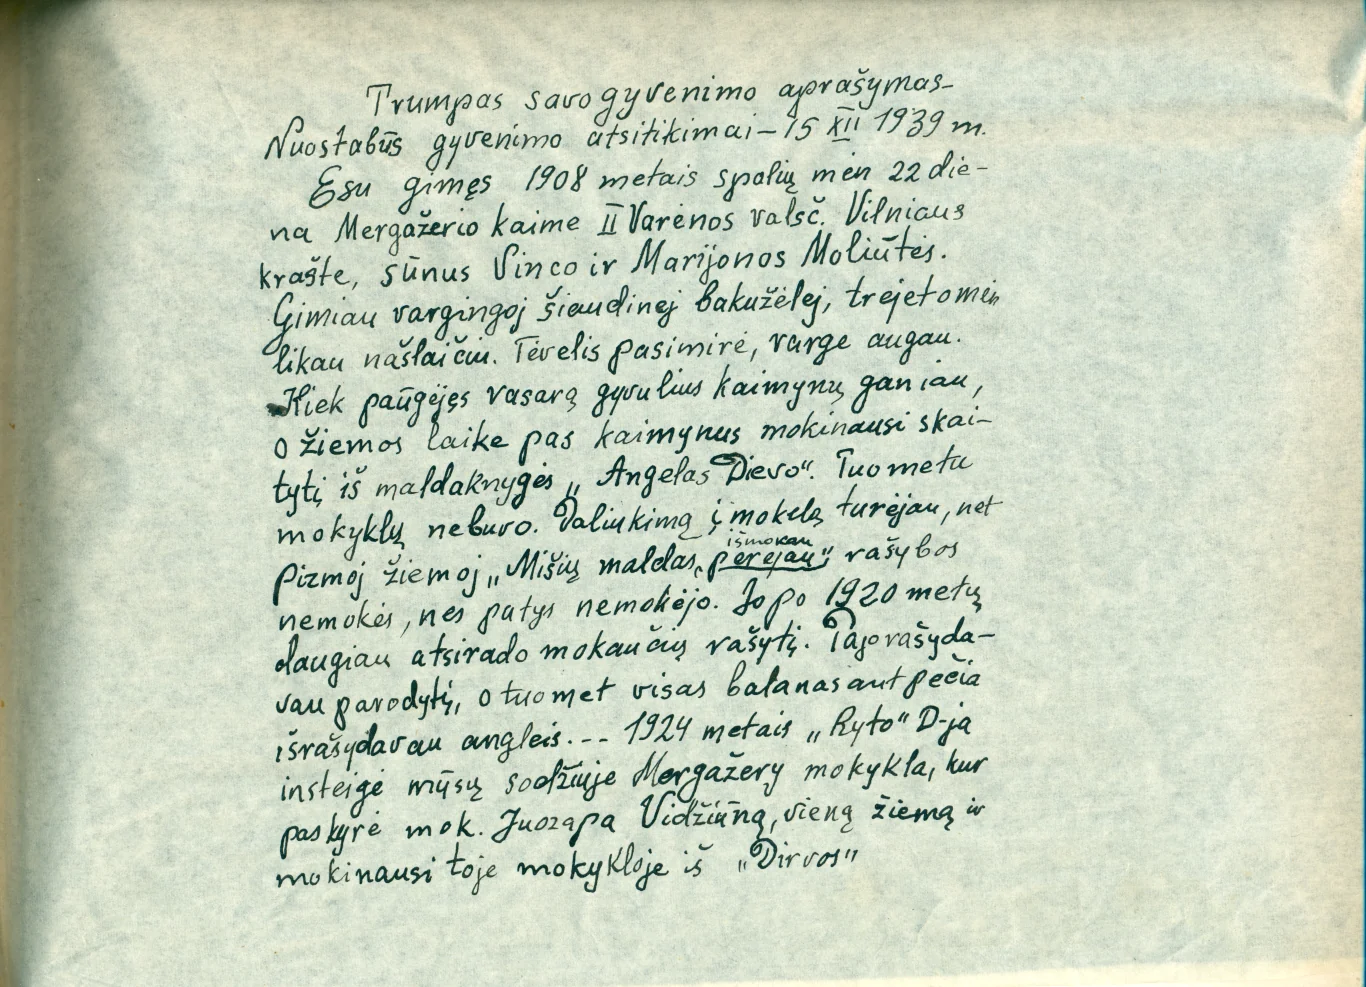 Trumpas savo gyvenimo aprašymas-
Nuostabūs gyvenimo atsitikimai – 15 XII 1939 m.
Esu gimęs 1908 metais spalių mėn 22 die-
na Mergažerio kaime II Varėnos valsč. Vilniaus
krašte, sūnus Vinco ir Marijonos Moliūtės.
Gimiau vargingoj šiaudinėj bakužėlėj, trejeto mėn
likau našlaičiu. Tėvelis pasimirė, varge augau.
Kiek paūgėjęs vasarą gyvulius kaimynų ganiau,
o žiemos laike pas kaimynus mokinausi skai-
tytį iš maldaknygės „Angelas Dievo“. Tuo metu
mokyklų nebuvo. Paliukimą į mokslą turėjau, net
pizmoj žiemoj „Mišių maldas„ perėjau“, rašybos
išmokau
nemokės, nes patys nemokėjo. Jo po 1920 metų
daugiau atsirado mokančių rašytį. Pajo rašyda-
vau parodytį, o tuomet visas balanas ant pečia
išrašydavau angleis... 1924 metais „Ryto“ D-ja
insteigė mūsų sodžiuje Mergažerų mokykla, kur
paskyrė mok. Juozapa Vidžiūną, vieną žiemą ir
mokinausi toje mokykloje iš „Dirvos“